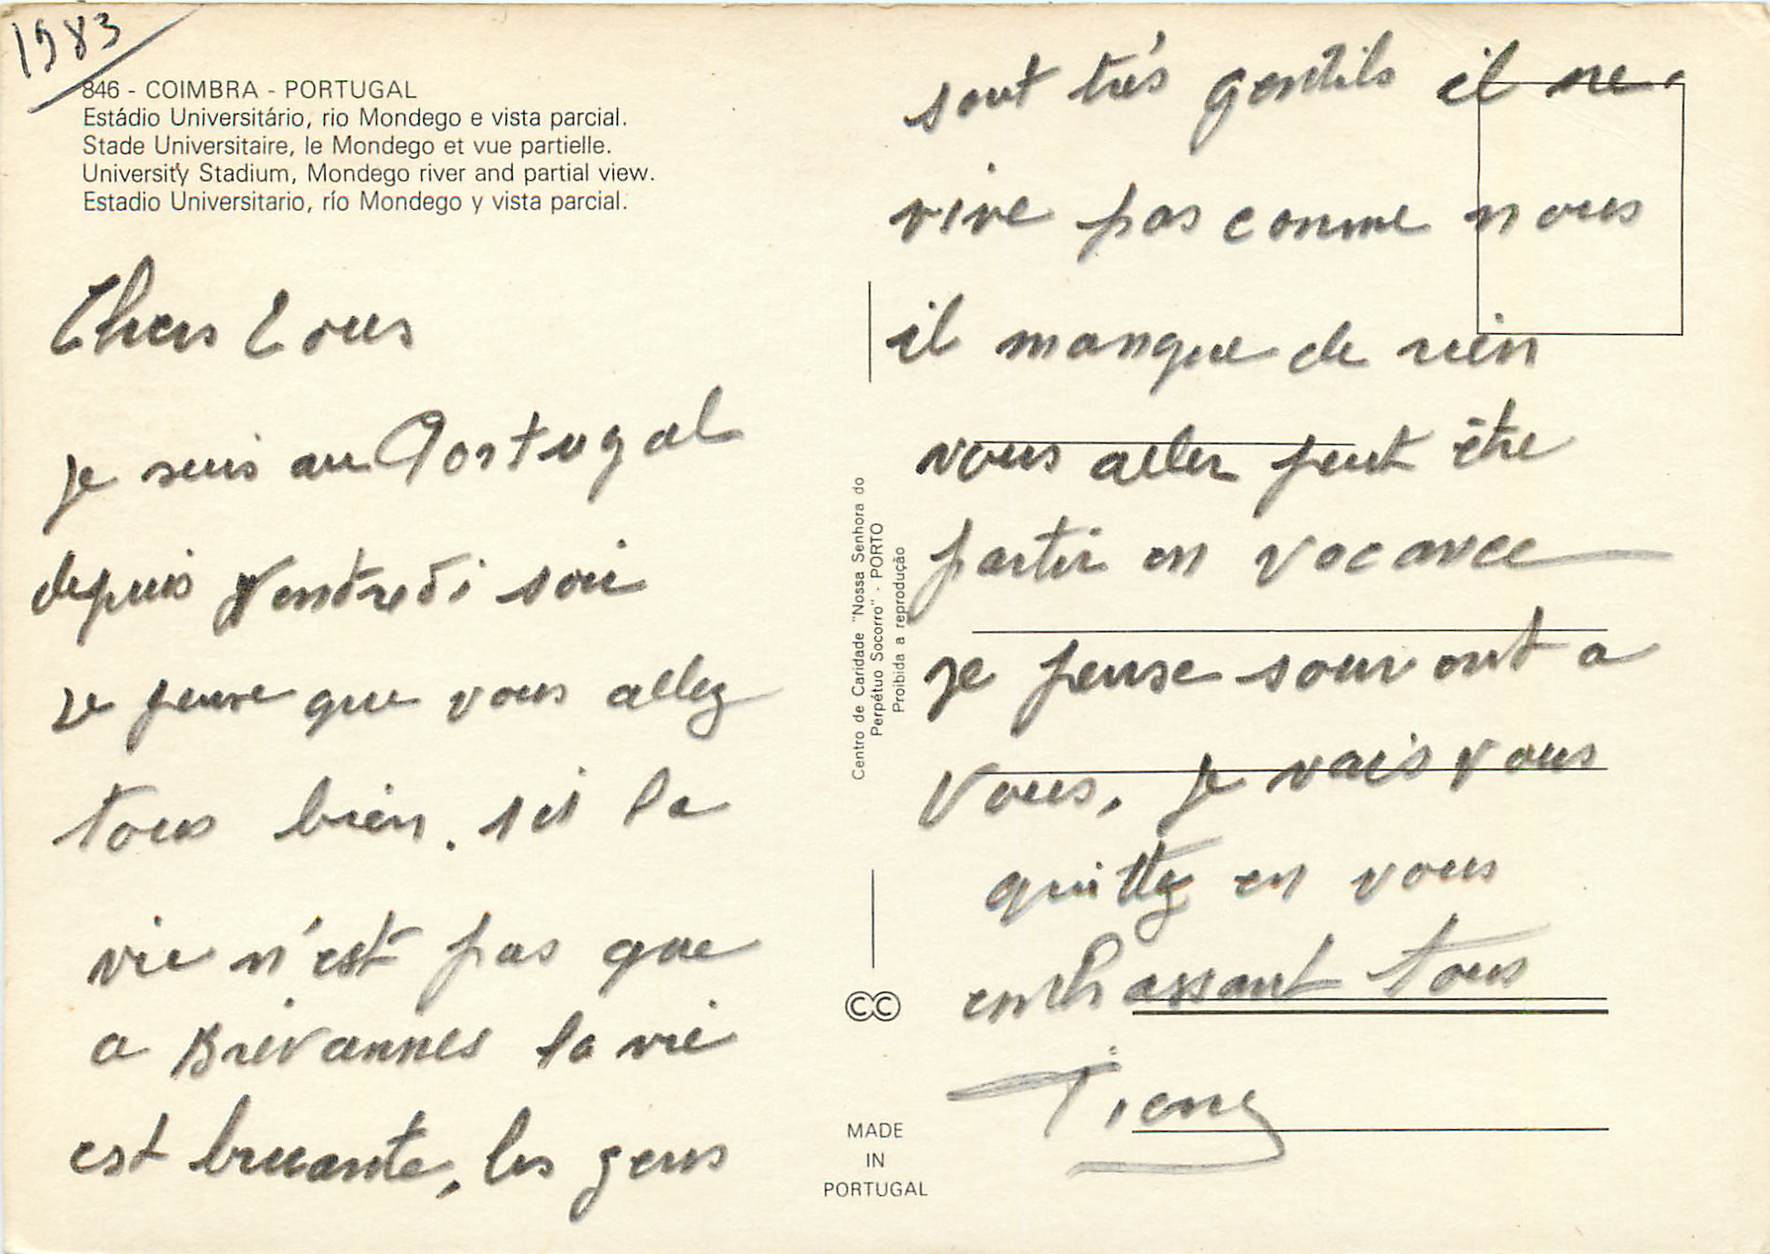 1983
846 - COIMBRA - PORTUGAL
Estádio Universitário, rio Mondego e vista parcial.
Stade Universitaire, le Mondego et vue partielle.
University Stadium, Mondego river and partial view.
Estadio Universitario, río Mondego y vista parcial.
Chers tous
Je suis au Portugal
depuis Vendredi soir
Je pense que vous allez
tous bien. ici la
vie n'est pas que
a Brevannes la vie
est bruante, les gens
sont très gentils il ne
vive pas comme nous
il manque de rien
vous aller peut être
partir en vacance
Je pense souvent a
vous, je vais vous
quittez en vous
embrassant tous
Centro de Caridade "Nossa Senhora do
Perpétuo Socorro" - PORTO
Proibida a reprodução
CC
MADE
IN
PORTUGAL